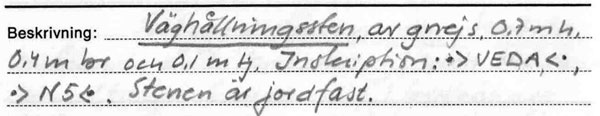 Beskrivning: Väghållningssten, av gnejs, 0,7 m h,
0,4 m br och 0,1 m tj. Inskription: •> VEDA <•,
•> N5 <•. Stenen är jordfast.